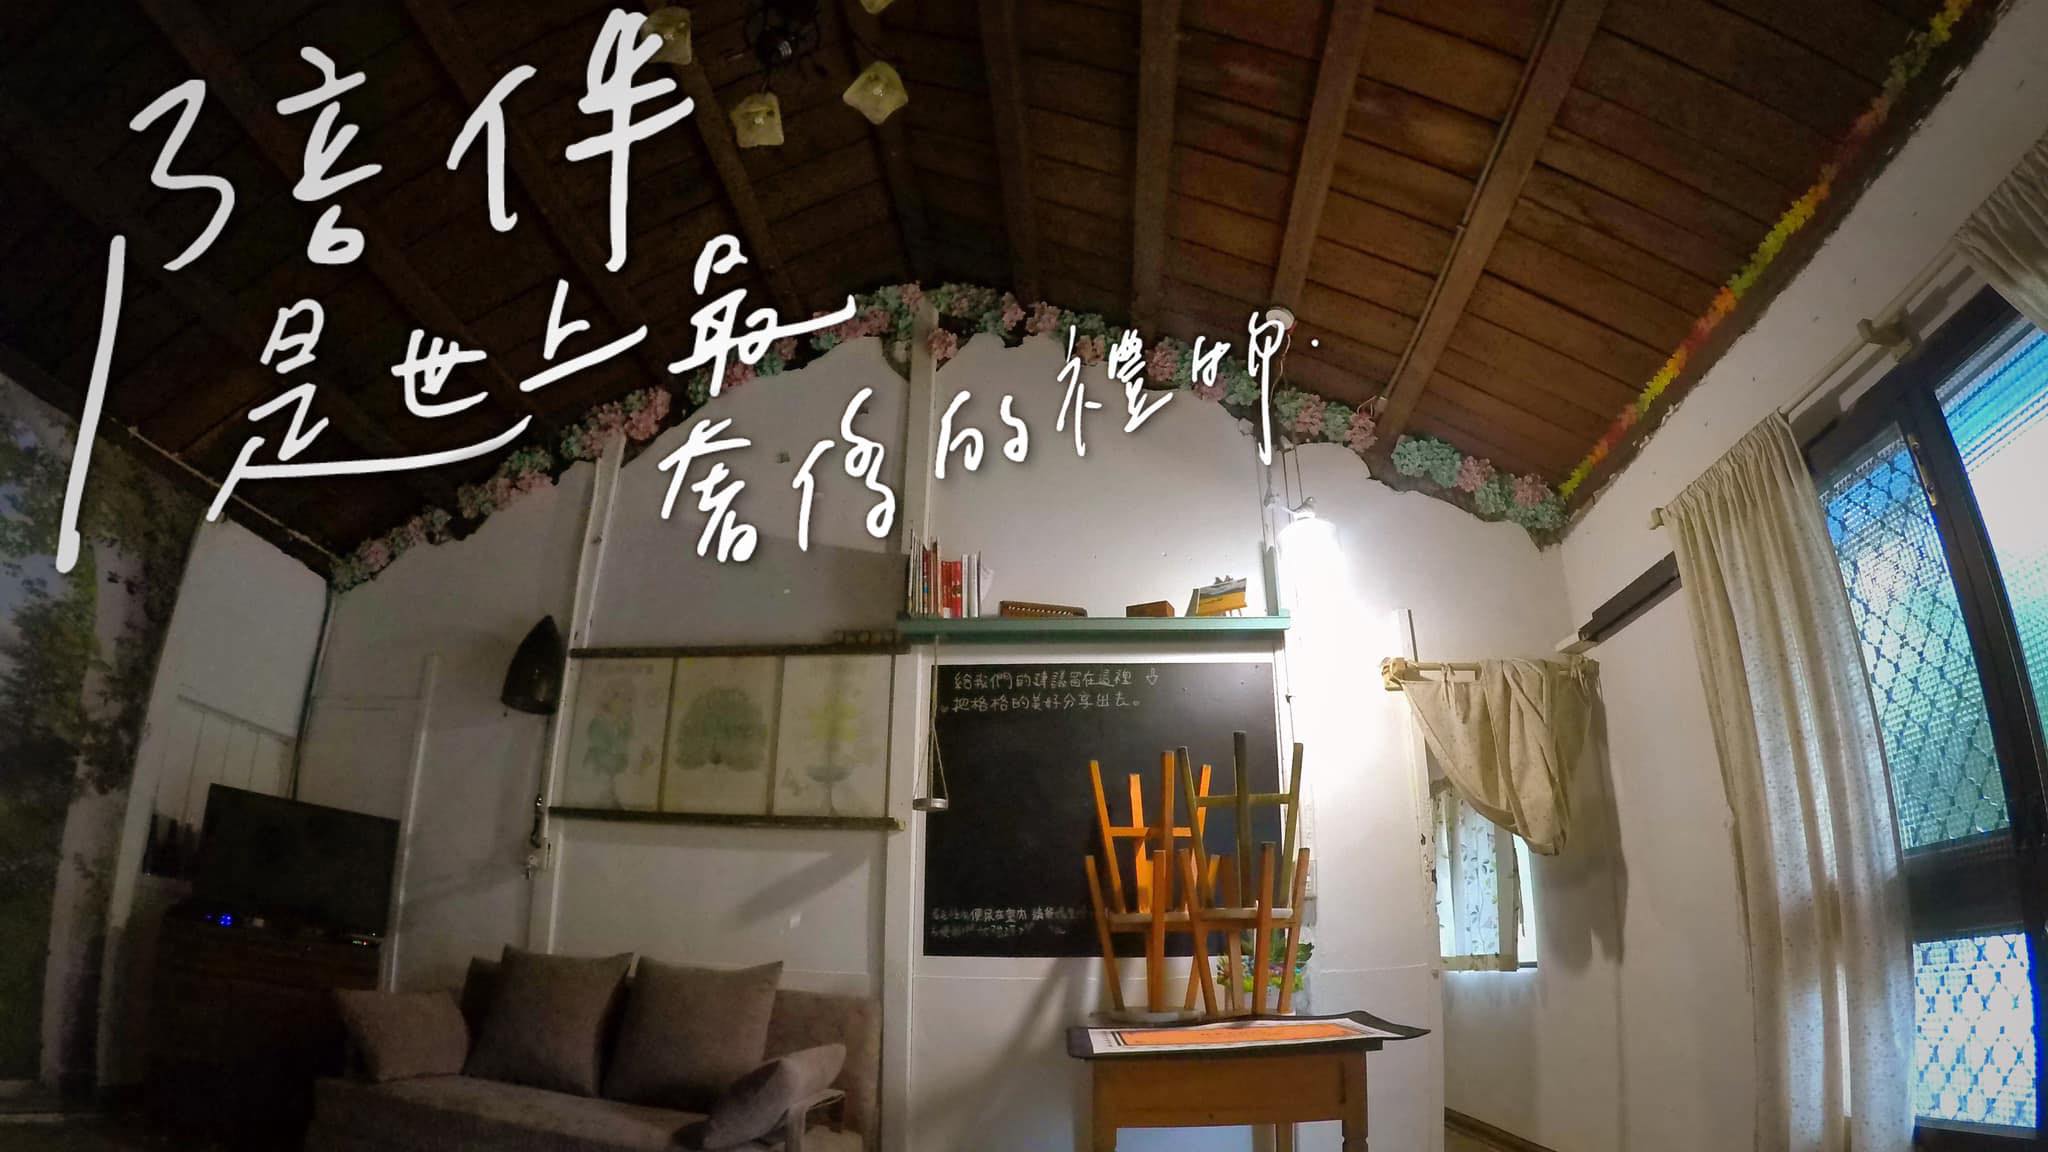 陪伴
是世上最
奢侈的禮物.
給我們的建議留在這裡
把格格的美好分享出去。
便尿在室內